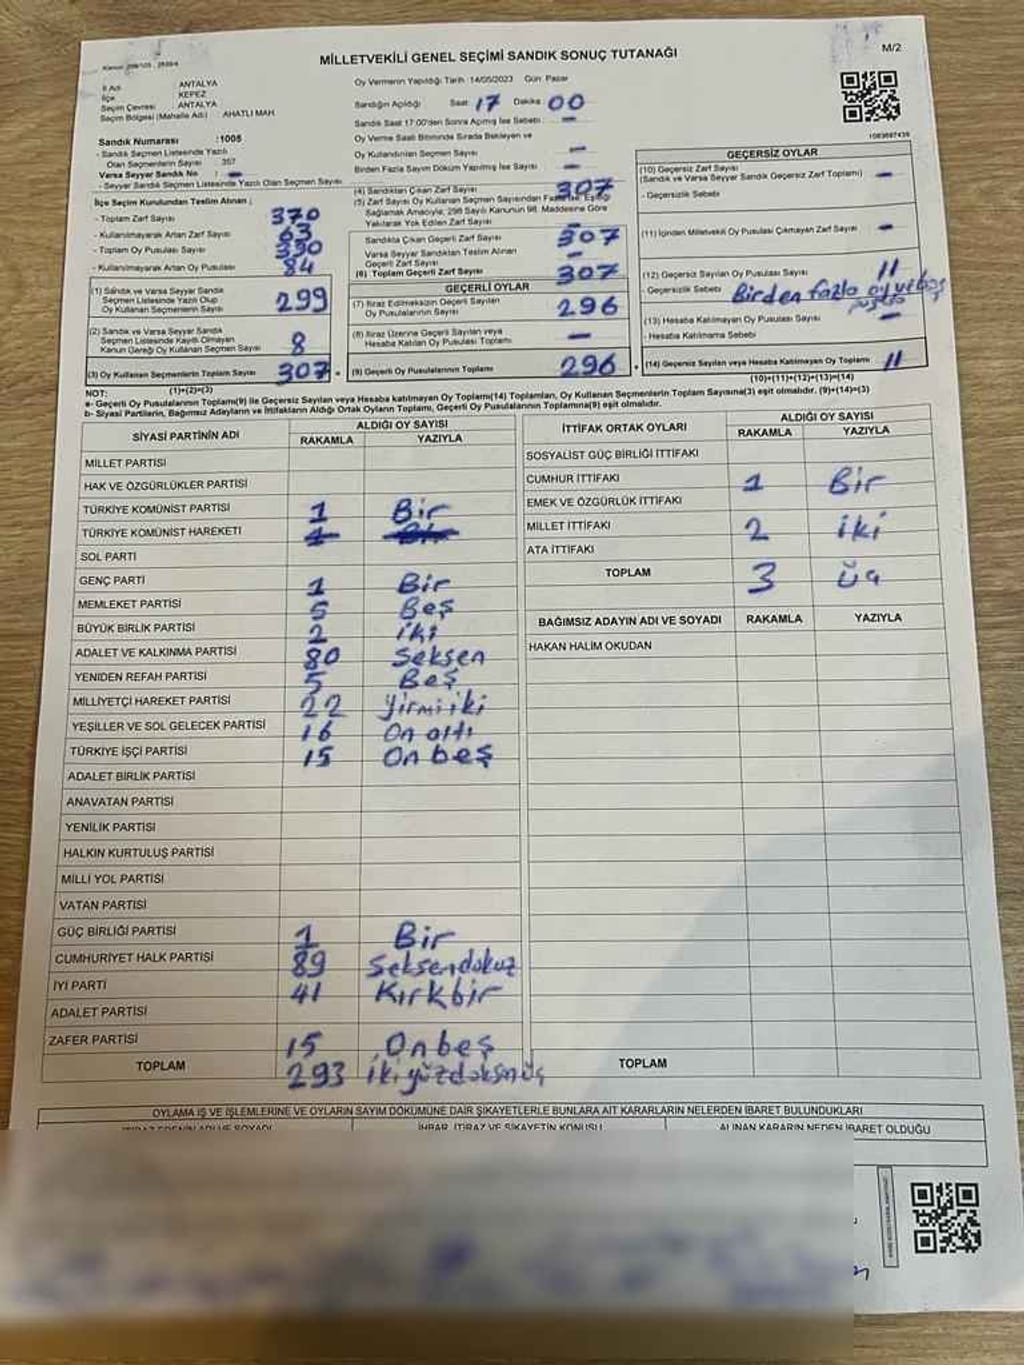 MİLLETVEKİLİ GENEL SEÇİMİ SANDIK SONUÇ TUTANAĞI
M/2
İl Adı : ANTALYA
İlçe : KEPEZ
Seçim Çevresi : ANTALYA
Seçim Bölgesi (Mahalle Adı) : AHATLI MAH
Oy Vermenin Yapıldığı Tarih : 14/05/2023 Gün: Pazar
Sandığın Açıldığı Saat: 17 Dakika: 00
Sandık Saat 17:00'den Sonra Açılmış İse Sebebi : —
Oy Verme Saati Bitiminde Sırada Bekleyen ve
Oy Kullandırılan Seçmen Sayısı —
Birden Fazla Sayım Döküm Yapılmış İse Sayısı : —
Sandık Numarası : 1005
- Sandık Seçmen Listesinde Yazılı
Olan Seçmenlerin Sayısı : 357
Varsa Seyyar Sandık No : —
- Seyyar Sandık Seçmen Listesinde Yazılı Olan Seçmen Sayısı
İlçe Seçim Kurulundan Teslim Alınan ;
- Toplam Zarf Sayısı 370
- Kullanılmayarak Artan Zarf Sayısı 63
- Toplam Oy Pusulası Sayısı
- Kullanılmayarak Artan Oy Pusulası 84
(1) Sandık ve Varsa Seyyar Sandık
Seçmen Listesinde Yazılı Olup
Oy Kullanan Seçmenlerin Sayısı 299
(2) Sandık ve Varsa Seyyar Sandık
Seçmen Listesinde Kayıtlı Olmayan
Kanun Gereği Oy Kullanan Seçmen Sayısı 8
(3) Oy Kullanan Seçmenlerin Toplam Sayısı 307
(1)+(2)=(3)
(4) Sandıktan Çıkan Zarf Sayısı 307
(5) Zarf Sayısı Oy Kullanan Seçmen Sayısından Fazla İse, Eşitliği
Sağlamak Amacıyla, 298 Sayılı Kanunun 98. Maddesine Göre
Yakılarak Yok Edilen Zarf Sayısı
Sandıkta Çıkan Geçerli Zarf Sayısı 307
Varsa Seyyar Sandıktan Teslim Alınan
Geçerli Zarf Sayısı —
(6) Toplam Geçerli Zarf Sayısı 307
GEÇERLİ OYLAR
(7) İtiraz Edilmeksizin Geçerli Sayılan
Oy Pusulalarının Sayısı 296
(8) İtiraz Üzerine Geçerli Sayılan veya
Hesaba Katılan Oy Pusulası Toplamı —
(9) Geçerli Oy Pusulalarının Toplamı 296
1083697439
GEÇERSİZ OYLAR
(10) Geçersiz Zarf Sayısı
(Sandık ve Varsa Seyyar Sandık Geçersiz Zarf Toplamı) —
- Geçersizlik Sebebi
(11) İçinden Milletvekili Oy Pusulası Çıkmayan Zarf Sayısı —
(12) Geçersiz Sayılan Oy Pusulası Sayısı 11
- Geçersizlik Sebebi Birden fazla oy ve boş
(13) Hesaba Katılmayan Oy Pusulası Sayısı —
- Hesaba Katılmama Sebebi
(14) Geçersiz Sayılan veya Hesaba Katılmayan Oy Toplamı 11
(10)+(11)+(12)+(13)=(14)
NOT:
a- Geçerli Oy Pusulalarının Toplamı(9) ile Geçersiz Sayılan veya Hesaba Katılmayan Oy Toplamı(14) Toplamları, Oy Kullanan Seçmenlerin Toplam Sayısına(3) eşit olmalıdır. (9)+(14)=(3)
b- Siyasi Partilerin, Bağımsız Adayların ve İttifakların Aldığı Ortak Oyların Toplamı, Geçerli Oy Pusulalarının Toplamına(9) eşit olmalıdır.
SİYASİ PARTİNİN ADI ALDIĞI OY SAYISI
RAKAMLA YAZIYLA
MİLLET PARTİSİ
HAK VE ÖZGÜRLÜKLER PARTİSİ
TÜRKİYE KOMÜNİST PARTİSİ 1 Bir
TÜRKİYE KOMÜNİST HAREKETİ 1 Bir
SOL PARTİ
GENÇ PARTİ 1 Bir
MEMLEKET PARTİSİ 5 Beş
BÜYÜK BİRLİK PARTİSİ 2 iki
ADALET VE KALKINMA PARTİSİ 80 Seksen
YENİDEN REFAH PARTİSİ 5 Beş
MİLLİYETÇİ HAREKET PARTİSİ 22 Yirmi iki
YEŞİLLER VE SOL GELECEK PARTİSİ 16 On altı
TÜRKİYE İŞÇİ PARTİSİ 15 On beş
ADALET BİRLİK PARTİSİ
ANAVATAN PARTİSİ
YENİLİK PARTİSİ
HALKIN KURTULUŞ PARTİSİ
MİLLİ YOL PARTİSİ
VATAN PARTİSİ
GÜÇ BİRLİĞİ PARTİSİ 1 Bir
CUMHURİYET HALK PARTİSİ 89 Seksendokuz
İYİ PARTİ 41 Kırkbir
ADALET PARTİSİ
ZAFER PARTİSİ 15 Onbeş
TOPLAM 293
İTTİFAK ORTAK OYLARI ALDIĞI OY SAYISI
RAKAMLA YAZIYLA
SOSYALİST GÜÇ BİRLİĞİ İTTİFAKI
CUMHUR İTTİFAKI 1 Bir
EMEK VE ÖZGÜRLÜK İTTİFAKI
MİLLET İTTİFAKI 2 iki
ATA İTTİFAKI
TOPLAM 3 üç
BAĞIMSIZ ADAYIN ADI VE SOYADI RAKAMLA YAZIYLA
HAKAN HALİM OKUDAN
TOPLAM
OYLAMA İŞ VE İŞLEMLERİNE VE OYLARIN SAYIM DÖKÜMÜNE DAİR ŞİKAYETLERLE BUNLARA AİT KARARLARIN NELERDEN İBARET BULUNDUKLARI
İHBAR, İTİRAZ VE ŞİKAYETİN KONUSU ALINAN KARARIN NEDEN İBARET OLDUĞU